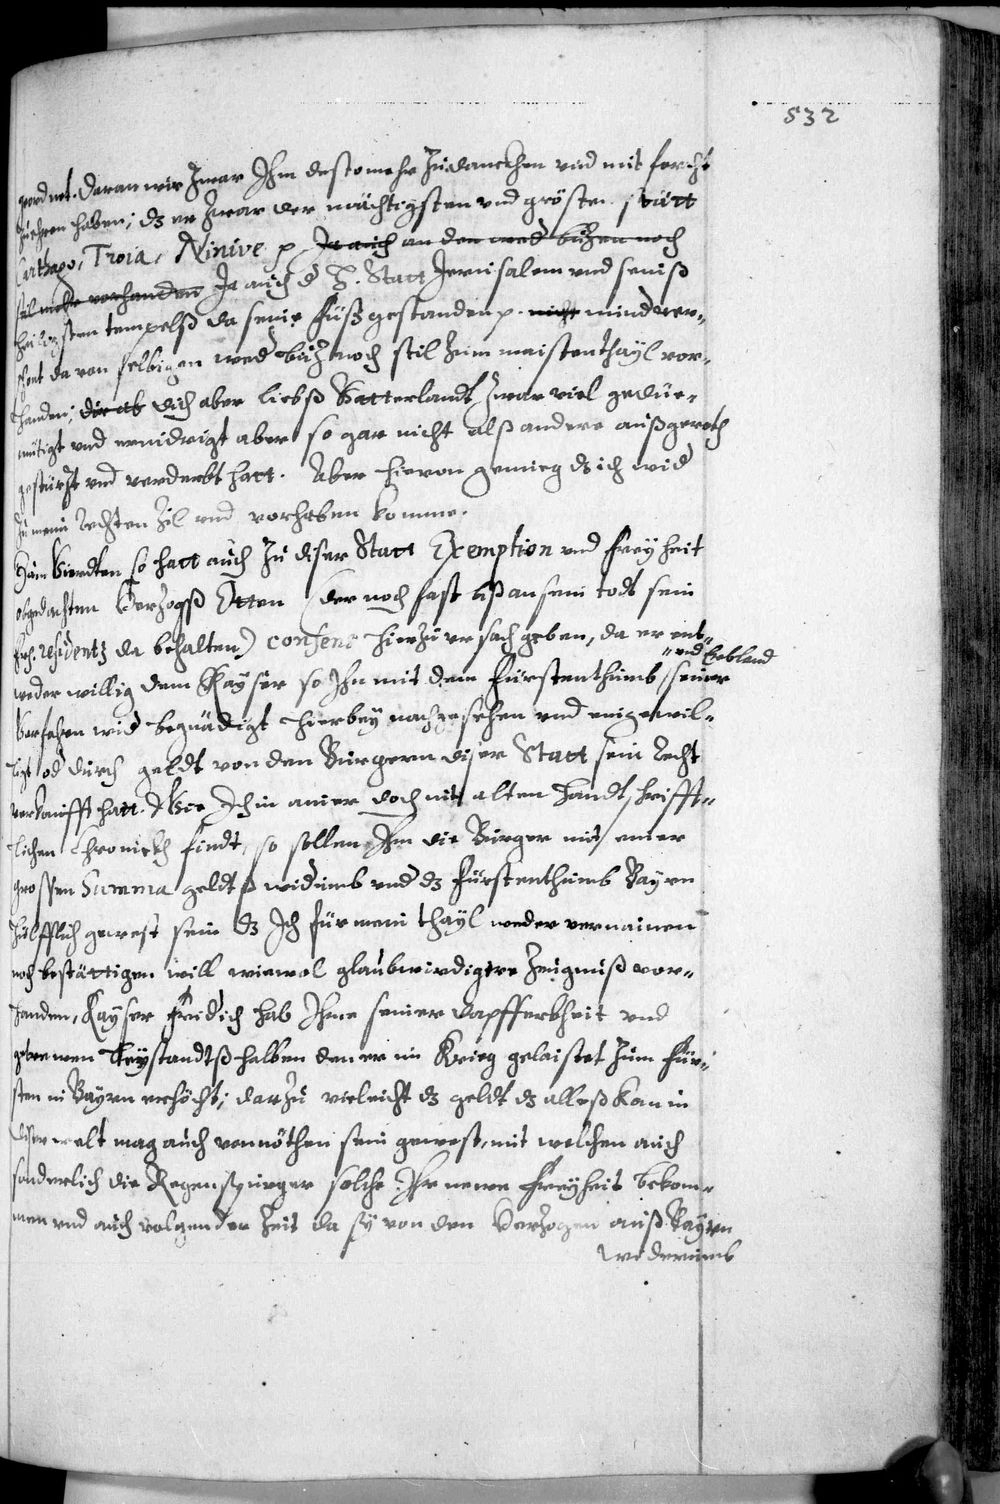 532
ordnet. Daran wir zwar Ihm destomehr zudanckhen und mit forcht
zuehren haben; dz er zwar der mächtigsten und grösten stätt
Carthago, Troia, Ninive p Ja auch an den wed bichen noch
stil mehr vorhanden Ja auch d H. Statt Jerusalem und seinß
heiligsten tempelß da seine füß gestanden p. nicht minder ver-
schont da von selbigen wed noch stil zum maistenthayl vor-
handen; die ab dich aber liebß Vatterlandt zwar viel gedüe-
mütigt und ernidrigt aber so gar nicht alß andere außgereth
gestürzt und verderbt hatt. Aber hievon genueg dz ich wid
zu meim rechten Zil und vorhaben komme.
Zum Vierdten so hatt auch zu diser Statt Exemption und freyheit
obgedachten Herzogß Otten (der noch fast biß an sein todt sein
frl. residentz da behalten) consens hierzu ursach geben, da er ent-
und Erbland
weder willig dem Kayser so Ihn mit dem fürstenthumb seiner
Vorfahren wid begnädigt hierbey nachgesehen und eingewil-
ligt od durch geldt von den Burgern diser Statt sein recht
verkaufft hatt. Wie Ich in ainer doch nit alten handtschrifft-
lichen Chronickh findt, so sollen Ihm die Burger mit einer
grossen Summa geldtß widumb und dz fürstenthumb Bayrn
hülfflich gewest sein dz Ich für mein thayl weder vernainen
noch bestättigen will wiewol glaubwirdigere Zeugnuß vor-
handen, Kayser Fridrich hab Ihme seiner dapfferkheit und
getrewen beystandtß halben den er im Krieg gelaistet zum für-
sten in Bayrn erhöcht; darzu vieleicht dz geldt dz alleß kan in
diser welt mag auch vonnöthen sein gewest, mit welchen auch
sonderlich die Regenspurger solche Ihr newe freyheit bekom-
men und auch volgender Zeit da sy von den Herzogen auß Bayrn
widerumb